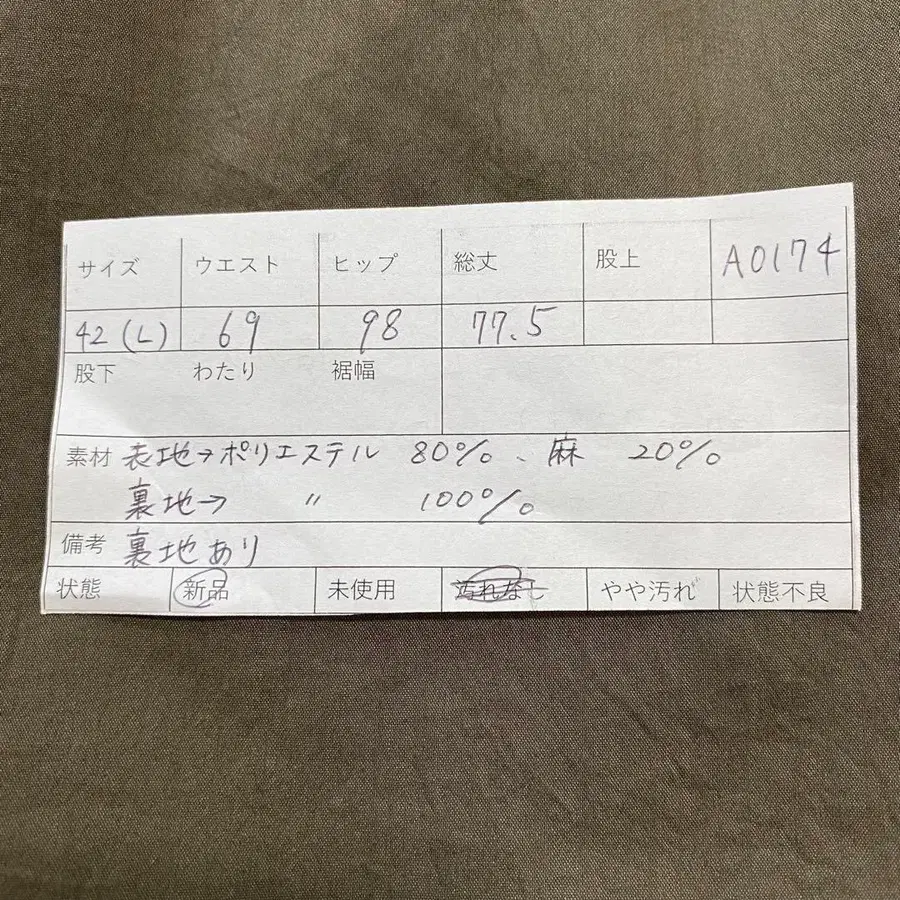 サイズ ウエスト ヒップ 総丈 股上 A0174
42(L) 69 98 77.5
股下 わたり 裾幅
素材 表地→ポリエステル 80%、麻 20%
裏地→ 〃 100%
備考 裏地あり
状態 新品 未使用 汚れなし やや汚れ 状態不良